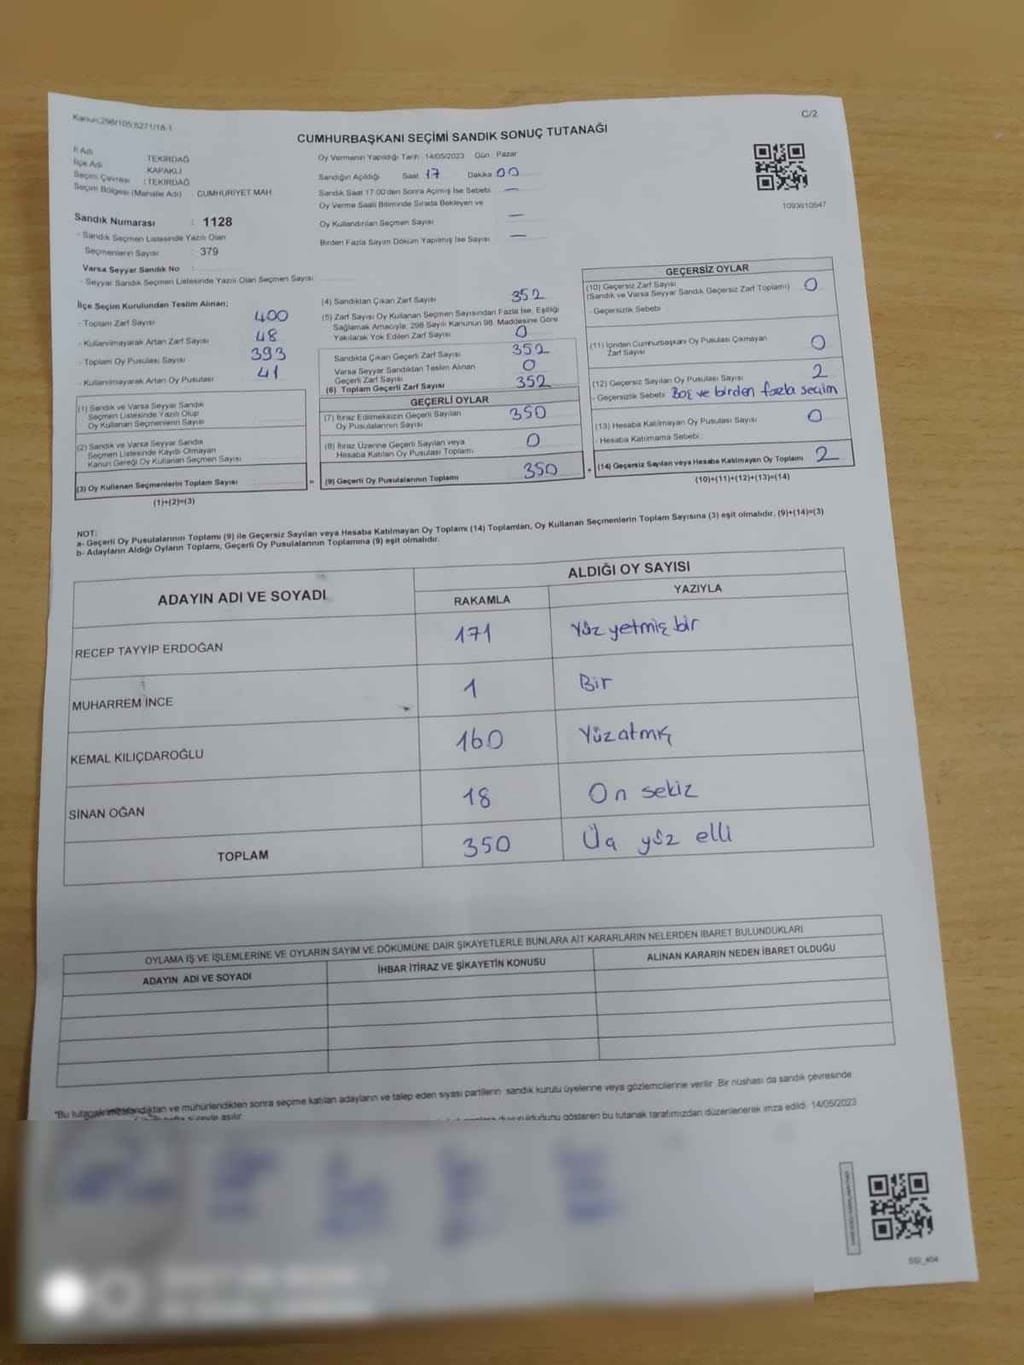 Kanun:298/105;6271/18-1
C/2
CUMHURBAŞKANI SEÇİMİ SANDIK SONUÇ TUTANAĞI
İl Adı TEKİRDAĞ
İlçe Adı KAPAKLI
Seçim Çevresi : TEKİRDAĞ
Seçim Bölgesi (Mahalle Adı) : CUMHURİYET MAH.
Sandık Numarası : 1128
- Sandık Seçmen Listesinde Yazılı Olan
Seçmenlerin Sayısı : 379
Varsa Seyyar Sandık No :
- Seyyar Sandık Seçmen Listesinde Yazılı Olan Seçmen Sayısı :
Oy Vermenin Yapıldığı Tarih : 14/05/2023 Gün : Pazar
Sandığın Açıldığı Saat 17 Dakika 00
Sandık Saat 17:00'den Sonra Açılmış İse Sebebi —
Oy Verme Saati Bitiminde Sırada Bekleyen ve
Oy Kullandırılan Seçmen Sayısı —
Birden Fazla Sayım Döküm Yapılmış İse Sayısı —
1093610547
İlçe Seçim Kurulundan Teslim Alınan;
- Toplam Zarf Sayısı 400
- Kullanılmayarak Artan Zarf Sayısı 48
- Toplam Oy Pusulası Sayısı 393
- Kullanılmayarak Artan Oy Pusulası 41
(1) Sandık ve Varsa Seyyar Sandık
Seçmen Listesinde Yazılı Olup
Oy Kullanan Seçmenlerin Sayısı
(2) Sandık ve Varsa Seyyar Sandık
Seçmen Listesinde Kayıtlı Olmayan
Kanun Gereği Oy Kullanan Seçmen Sayısı
(3) Oy Kullanan Seçmenlerin Toplam Sayısı
(1)+(2)=(3)
(4) Sandıktan Çıkan Zarf Sayısı 352
(5) Zarf Sayısı Oy Kullanan Seçmen Sayısından Fazla İse, Eşitliği
Sağlamak Amacıyla, 298 Sayılı Kanunun 98. Maddesine Göre
Yakılarak Yok Edilen Zarf Sayısı 0
Sandıkta Çıkan Geçerli Zarf Sayısı 352
Varsa Seyyar Sandıktan Teslim Alınan
Geçerli Zarf Sayısı 0
(6) Toplam Geçerli Zarf Sayısı 352
GEÇERLİ OYLAR
(7) İtiraz Edilmeksizin Geçerli Sayılan
Oy Pusulalarının Sayısı 350
(8) İtiraz Üzerine Geçerli Sayılan veya
Hesaba Katılan Oy Pusulası Toplamı 0
= (9) Geçerli Oy Pusulalarının Toplamı 350
GEÇERSİZ OYLAR
(10) Geçersiz Zarf Sayısı
(Sandık ve Varsa Seyyar Sandık Geçersiz Zarf Toplamı) 0
- Geçersizlik Sebebi :
(11) İçinden Cumhurbaşkanı Oy Pusulası Çıkmayan
Zarf Sayısı 0
(12) Geçersiz Sayılan Oy Pusulası Sayısı 2
- Geçersizlik Sebebi : Boş ve birden fazla seçim
(13) Hesaba Katılmayan Oy Pusulası Sayısı 0
- Hesaba Katılmama Sebebi :
+ (14) Geçersiz Sayılan veya Hesaba Katılmayan Oy Toplamı 2
(10)+(11)+(12)+(13)=(14)
NOT:
a- Geçerli Oy Pusulalarının Toplamı (9) ile Geçersiz Sayılan veya Hesaba Katılmayan Oy Toplamı (14) Toplamları, Oy Kullanan Seçmenlerin Toplam Sayısına (3) eşit olmalıdır. (9)+(14)=(3)
b- Adayların Aldığı Oyların Toplamı, Geçerli Oy Pusulalarının Toplamına (9) eşit olmalıdır.
ADAYIN ADI VE SOYADI
ALDIĞI OY SAYISI
RAKAMLA YAZIYLA
RECEP TAYYİP ERDOĞAN 171 Yüz yetmiş bir
MUHARREM İNCE 1 Bir
KEMAL KILIÇDAROĞLU 160 Yüz atmış
SİNAN OĞAN 18 On sekiz
TOPLAM 350 Üç yüz elli
OYLAMA İŞ VE İŞLEMLERİNE VE OYLARIN SAYIM VE DÖKÜMÜNE DAİR ŞİKAYETLERLE BUNLARA AİT KARARLARIN NELERDEN İBARET BULUNDUKLARI
ADAYIN ADI VE SOYADI İHBAR İTİRAZ VE ŞİKAYETİN KONUSU ALINAN KARARIN NEDEN İBARET OLDUĞU
"Bu tutanak imzalandıktan ve mühürlendikten sonra seçime katılan adayların ve talep eden siyasi partilerin sandık kurulu üyelerine veya gözlemcilerine verilir. Bir nüshası da sandık çevresinde
olduğunu gösteren bu tutanak tarafımızdan düzenlenerek imza edildi. 14/05/2023